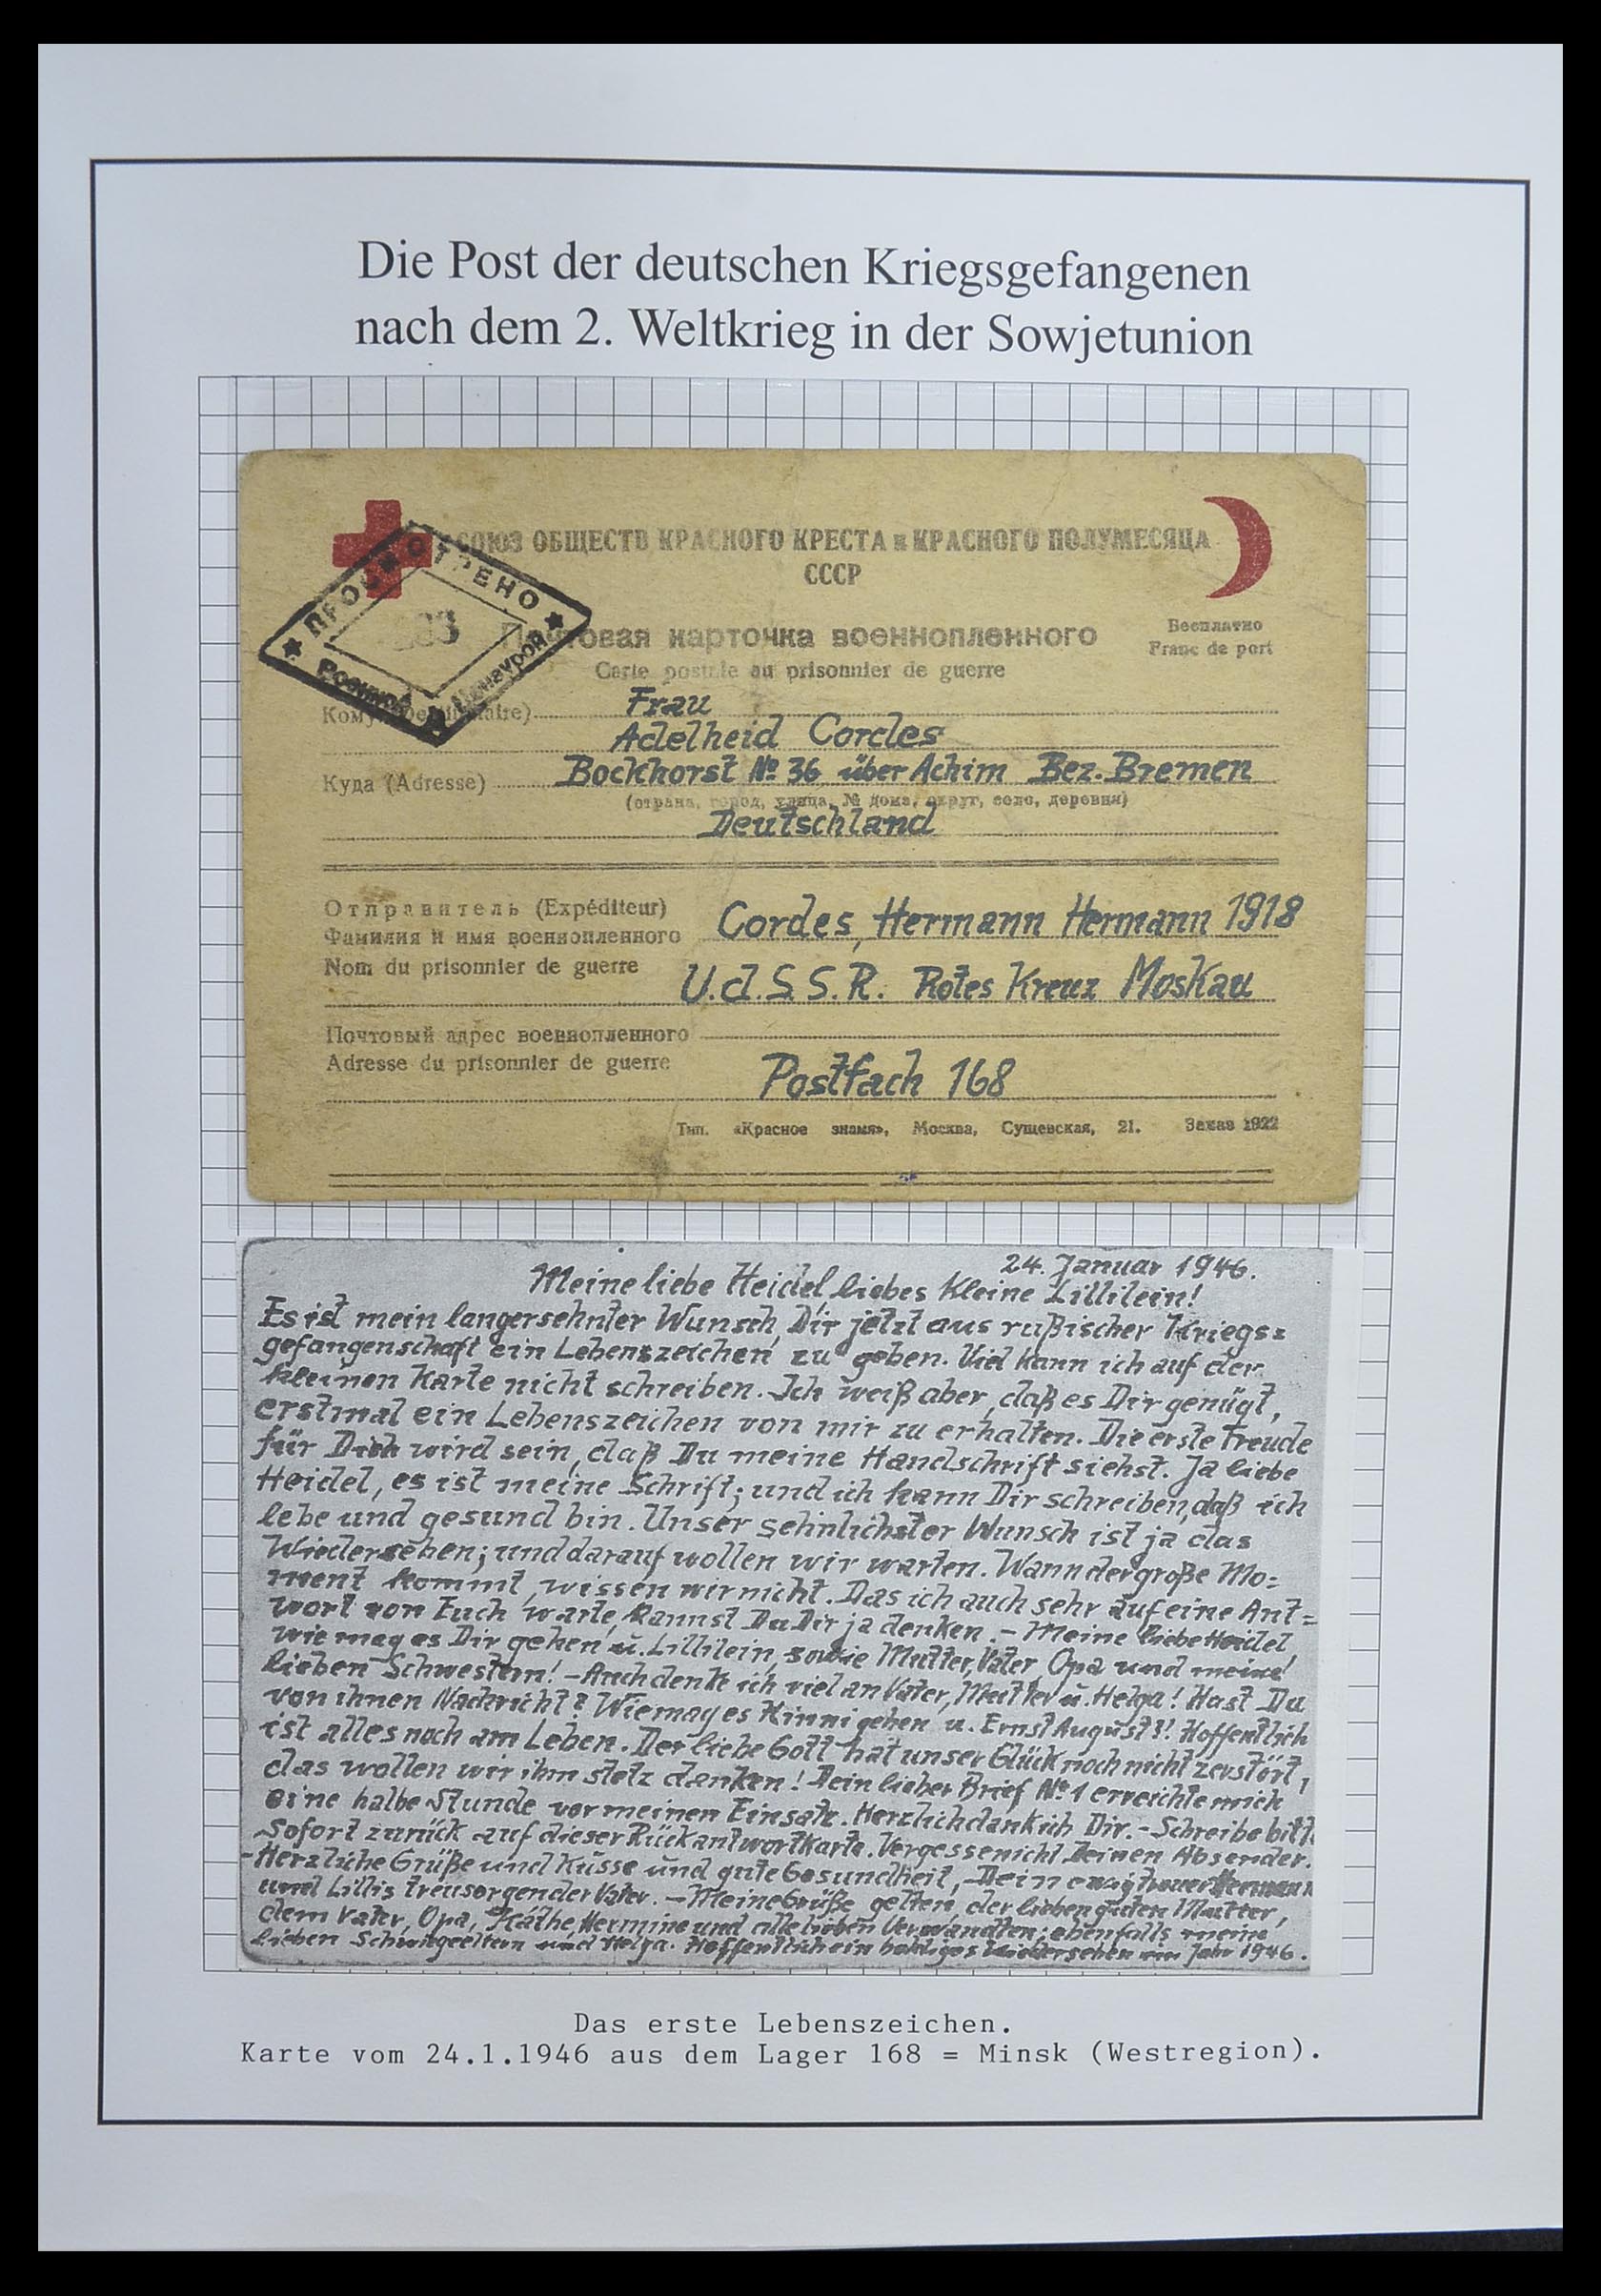 Die Post der deutschen Kriegsgefangenen
nach dem 2. Weltkrieg in der Sowjetunion
СОЮЗ ОБЩЕСТВ КРАСНОГО КРЕСТА и КРАСНОГО ПОЛУМЕСЯЦА
СССР
ПРОСМОТРЕНО
Военной Цензурой
Почтовая карточка военнопленного
Бесплатно
Franc de port
Carte postale au prisonnier de guerre
Кому (Destinataire)
Frau
Adelheid Cordes
Куда (Adresse)
Bockhorst № 36 über Achim Bez. Bremen
(страна, город, улица, № дома, округ, село, деревня)
Deutschland
Отправитель (Expéditeur)
Фамилия и имя военнопленного
Cordes, Hermann Hermann 1918
Nom du prisonnier de guerre
U.d.S.S.R. Rotes Kreuz Moskau
Почтовый адрес военнопленного
Adresse du prisonnier de guerre
Postfach 168
Тип. «Красное знамя», Москва, Сущевская, 21. Заказ 1922
24. Januar 1946.
Meine liebe Heidel, liebes kleine Lillilein!
Es ist mein langersehnter Wunsch, Dir jetzt aus rußischer Kriegs=
gefangenschaft ein Lebenszeichen zu geben. Viel kann ich auf der
kleinen Karte nicht schreiben. Ich weiß aber, daß es Dir genügt,
erstmal ein Lebenszeichen von mir zu erhalten. Die erste Freude
für Dich wird sein, daß Du meine Handschrift siehst. Ja liebe
Heidel, es ist meine Schrift; und ich kann Dir schreiben, daß ich
lebe und gesund bin. Unser sehnlichster Wunsch ist ja das
Wiedersehen; und darauf wollen wir warten. Wann der große Mo=
ment kommt, wissen wir nicht. Das ich auch sehr auf eine Ant=
wort von Euch warte, kannst Du Dir ja denken. – Meine liebe Heidel
wie mag es Dir gehen u. Lillilein, sowie Mutter, Vater, Opa und meine
lieben Schwestern! – Auch denke ich viel an Vater, Mutter u. Helga! Hast Du
von ihnen Nachricht? Wie mag es Hinni gehen u. Ernst August?! Hoffentlich
ist alles noch am Leben. Der liebe Gott hat unser Glück noch nicht zerstört,
das wollen wir ihm stetz danken! Dein lieber Brief № 1 erreichte mich
eine halbe Stunde vor meinen Einsatz. Herzlich dank ich Dir. – Schreibe bitte
sofort zurück auf dieser Rückantwortkarte. Vergesse nicht Deinen Absender.
– Herzliche Grüße und Küsse und gute Gesundheit, – Dein ewig treuer Hermann
und Lillis treusorgender Vater. – Meine Grüße gelten, der lieben guten Mutter,
dem Vater, Opa, Käthe, Hermine und alle lieben Verwandten; ebenfalls meine
lieben Schwiegereltern und Helga. Hoffentlich ein baldiges Wiedersehen im Jahr 1946.
Das erste Lebenszeichen.
Karte vom 24.1.1946 aus dem Lager 168 = Minsk (Westregion).